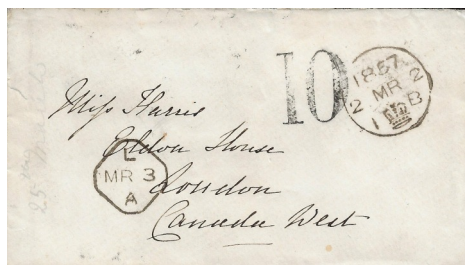 10
1857
MR
2 2
1 B
Miss Harris
Eldon House
London
Canada West
L
MR 3
A